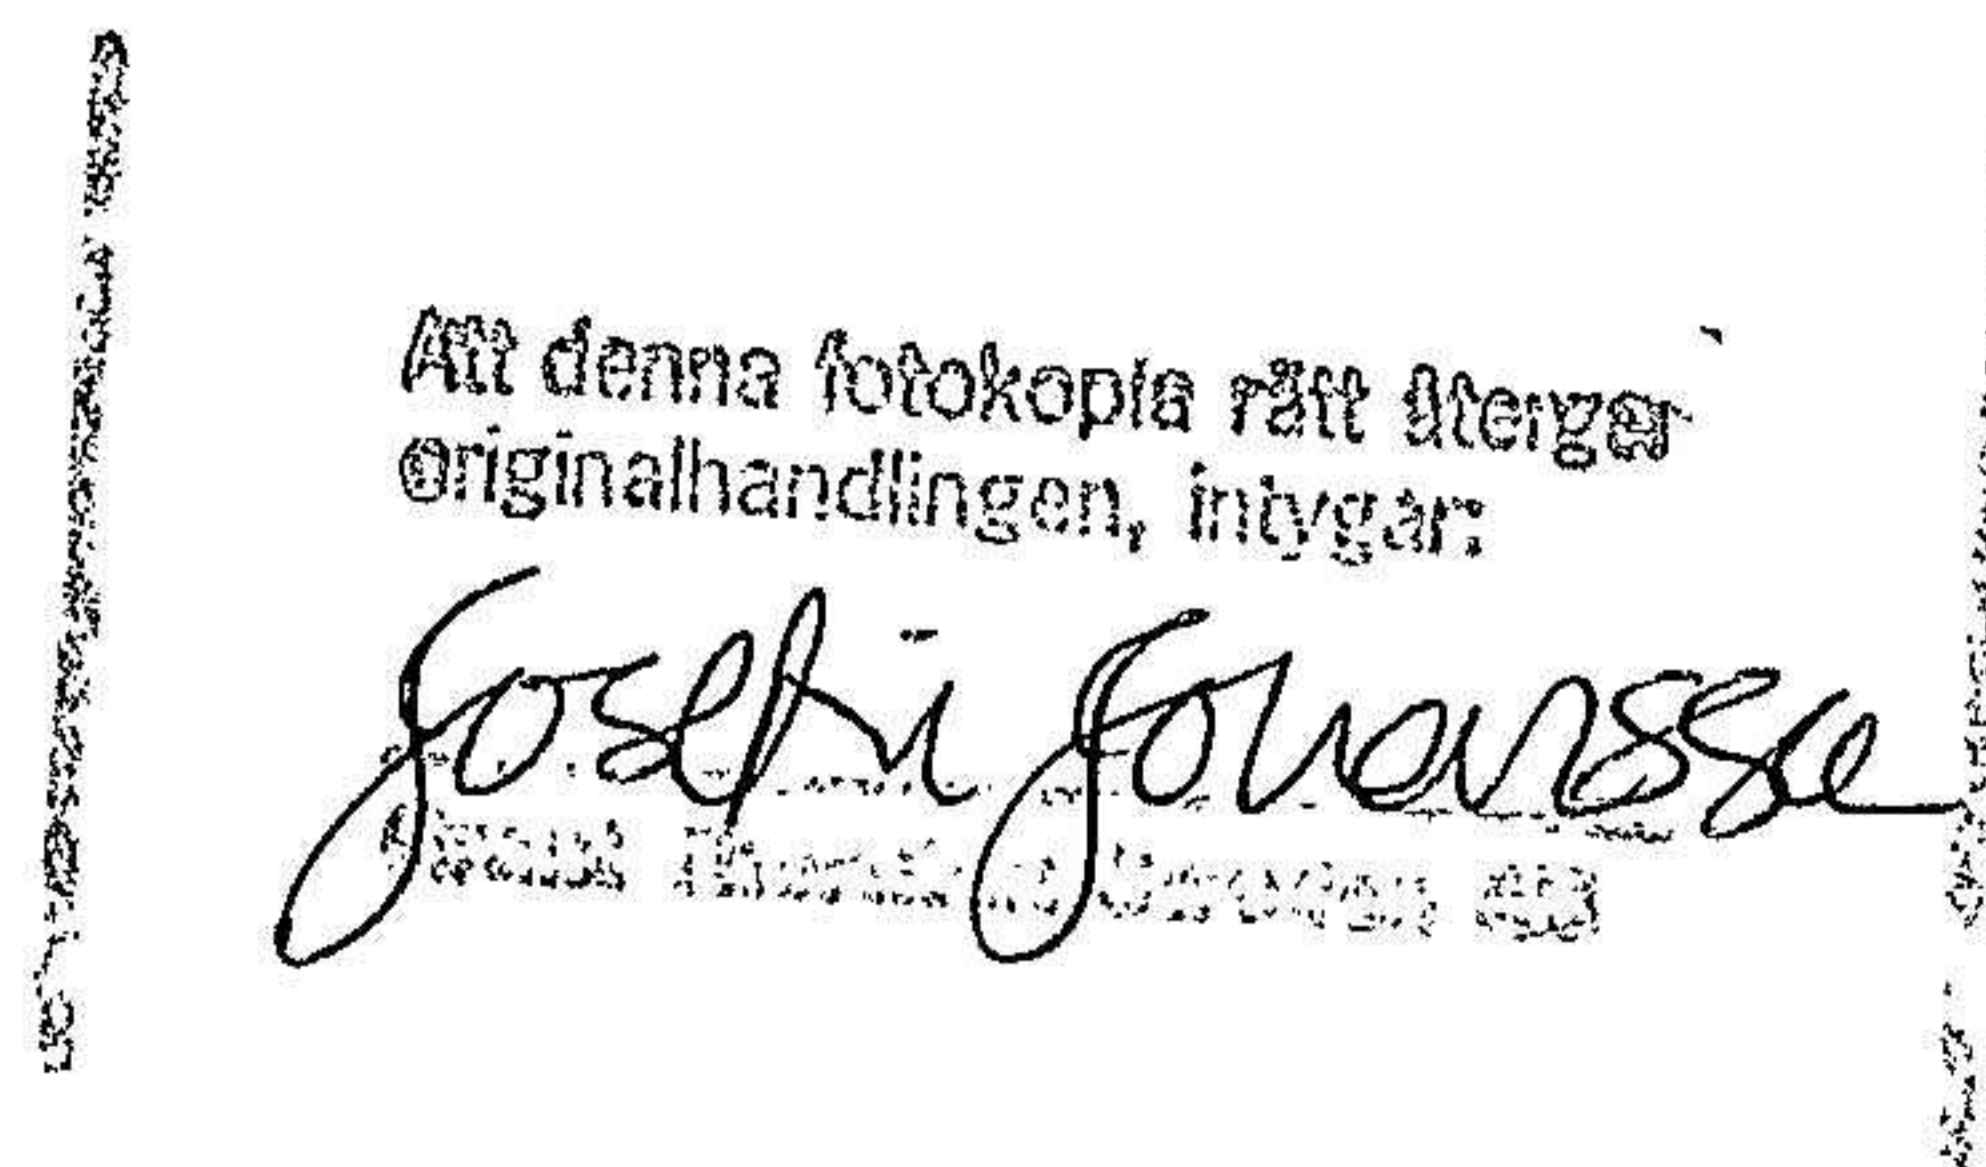 Att denna fotokopia rätt återger
originalhandlingen, intygar:
Josefin Johansson